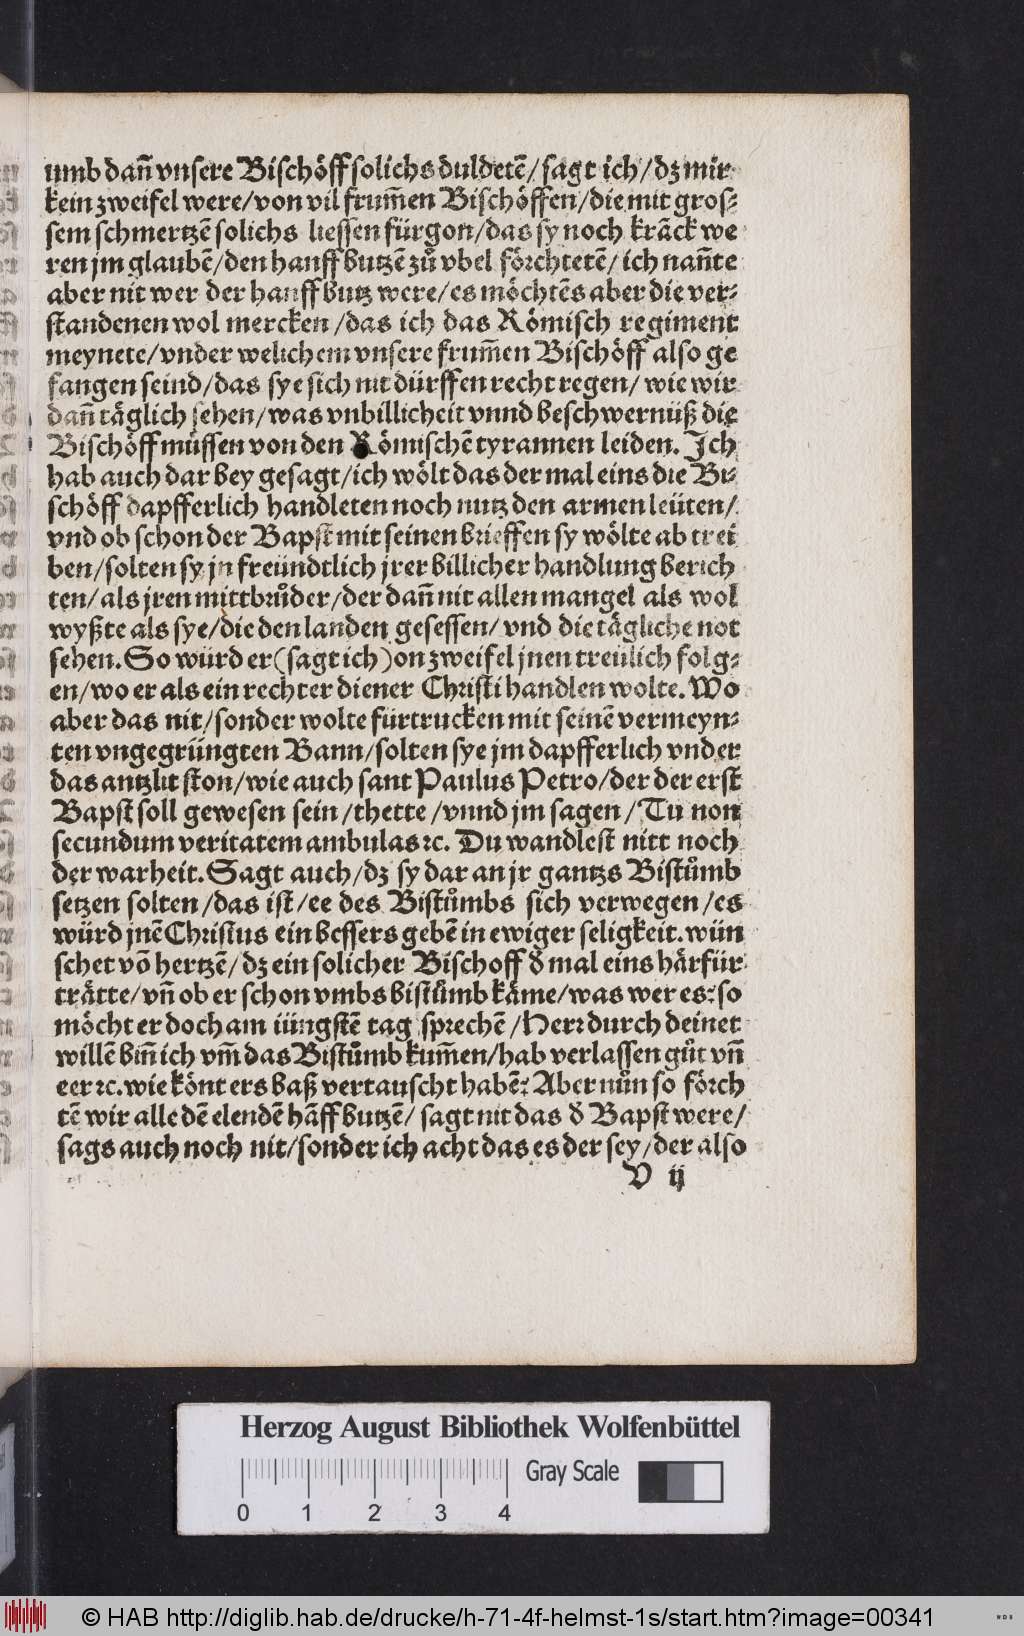 umb dañ vnsere Bischöff solichs duldetē/ sagt ich/ dz mir
kein zweifel were/ von vil frum̄en Bischöffen/ die mit gros-
sem schmertzē solichs liessen fürgon/ das sy noch krāck we
ren jm glaubē/ den hanff butzē zů vbel förchtetē/ ich nañte
aber nit wer der hanff butz were/ es möchtēs aber die ver-
standenen wol mercken/ das ich das Römisch regiment
meynete/ vnder welichem vnsere frum̄en Bischöff also ge
fangen seind/ das sye sich nit dürffen recht regen/ wie wir
dañ täglich sehen/ was vnbillicheit vnnd beschwernüß die
Bischöff müssen von den Römischē tyrannen leiden. Ich
hab auch dar bey gesagt/ ich wölt das der mal eins die Bi-
schöff dapfferlich handleten noch nutz den armen leüten/
vnd ob schon der Bapst mit seinen brieffen sy wölte ab trei
ben/ solten sy jn freündtlich jrer billicher handlung berich
ten/ als jren mittbrůder/ der dañ nit allen mangel als wol
wyßte als sye/ die den landen gesessen/ vnd die tägliche not
sehen. So würd er (sagt ich) on zweifel jnen treülich folg-
en/ wo er als ein rechter diener Christi handlen wolte. Wo
aber das nit/ sonder wolte fürtrucken mit seinē vermeyn-
ten vngegrüngten Bann/ solten sye jm dapfferlich vnder
das antzlit ston/ wie auch sant Paulus Petro/ der der erst
Bapst soll gewesen sein/ thette/ vnnd jm sagen/ Tu non
secundum veritatem ambulas ꝛc. Du wandlest nitt noch
der warheit. Sagt auch/ dz sy dar an jr gantzs Bistůmb
setzen solten/ das ist/ ee des Bistůmbs sich verwegen/ es
würd jnē Christus ein bessers gebē in ewiger seligkeit. wün
schet vō hertzē/ dz ein solicher Bischoff d̄ mal eins härfür
trätte/ vñ ob er schon vmbs bistůmb käme/ was wer es: so
möcht er doch am iüngstē tag sprechē/ Herr durch deinet
willē biñ ich vm̄ das Bistůmb kum̄en/ hab verlassen gůt vñ
eer ꝛc. wie könt ers baß vertauscht habē: Aber nůn so förch
tē wir alle dē elendē hāff butzē/ sagt nit das d̄ Bapst were/
sags auch noch nit/ sonder ich acht das es der sey/ der also
V ij
Herzog August Bibliothek Wolfenbüttel
Gray Scale
0 1 2 3 4
© HAB http://diglib.hab.de/drucke/h-71-4f-helmst-1s/start.htm?image=00341